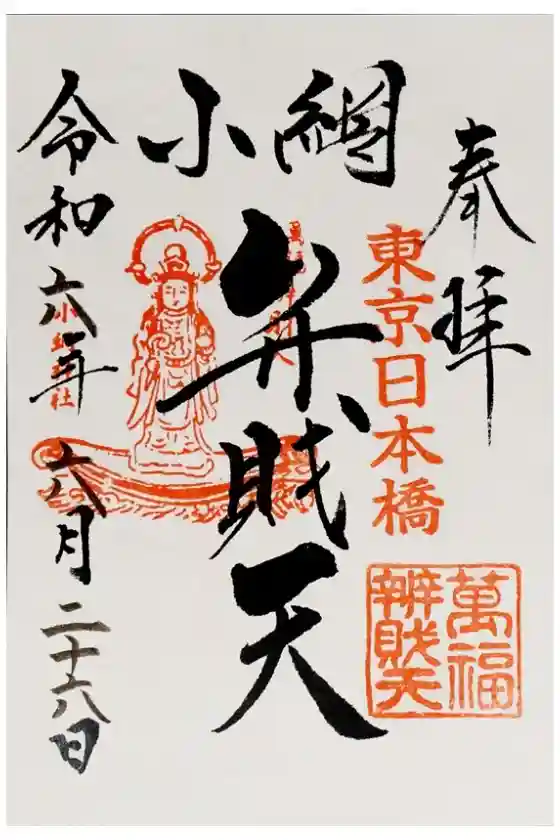 奉拝
東京日本橋
萬福
辨財天
小網
弁財天
令和六年六月二十六日
小網神社